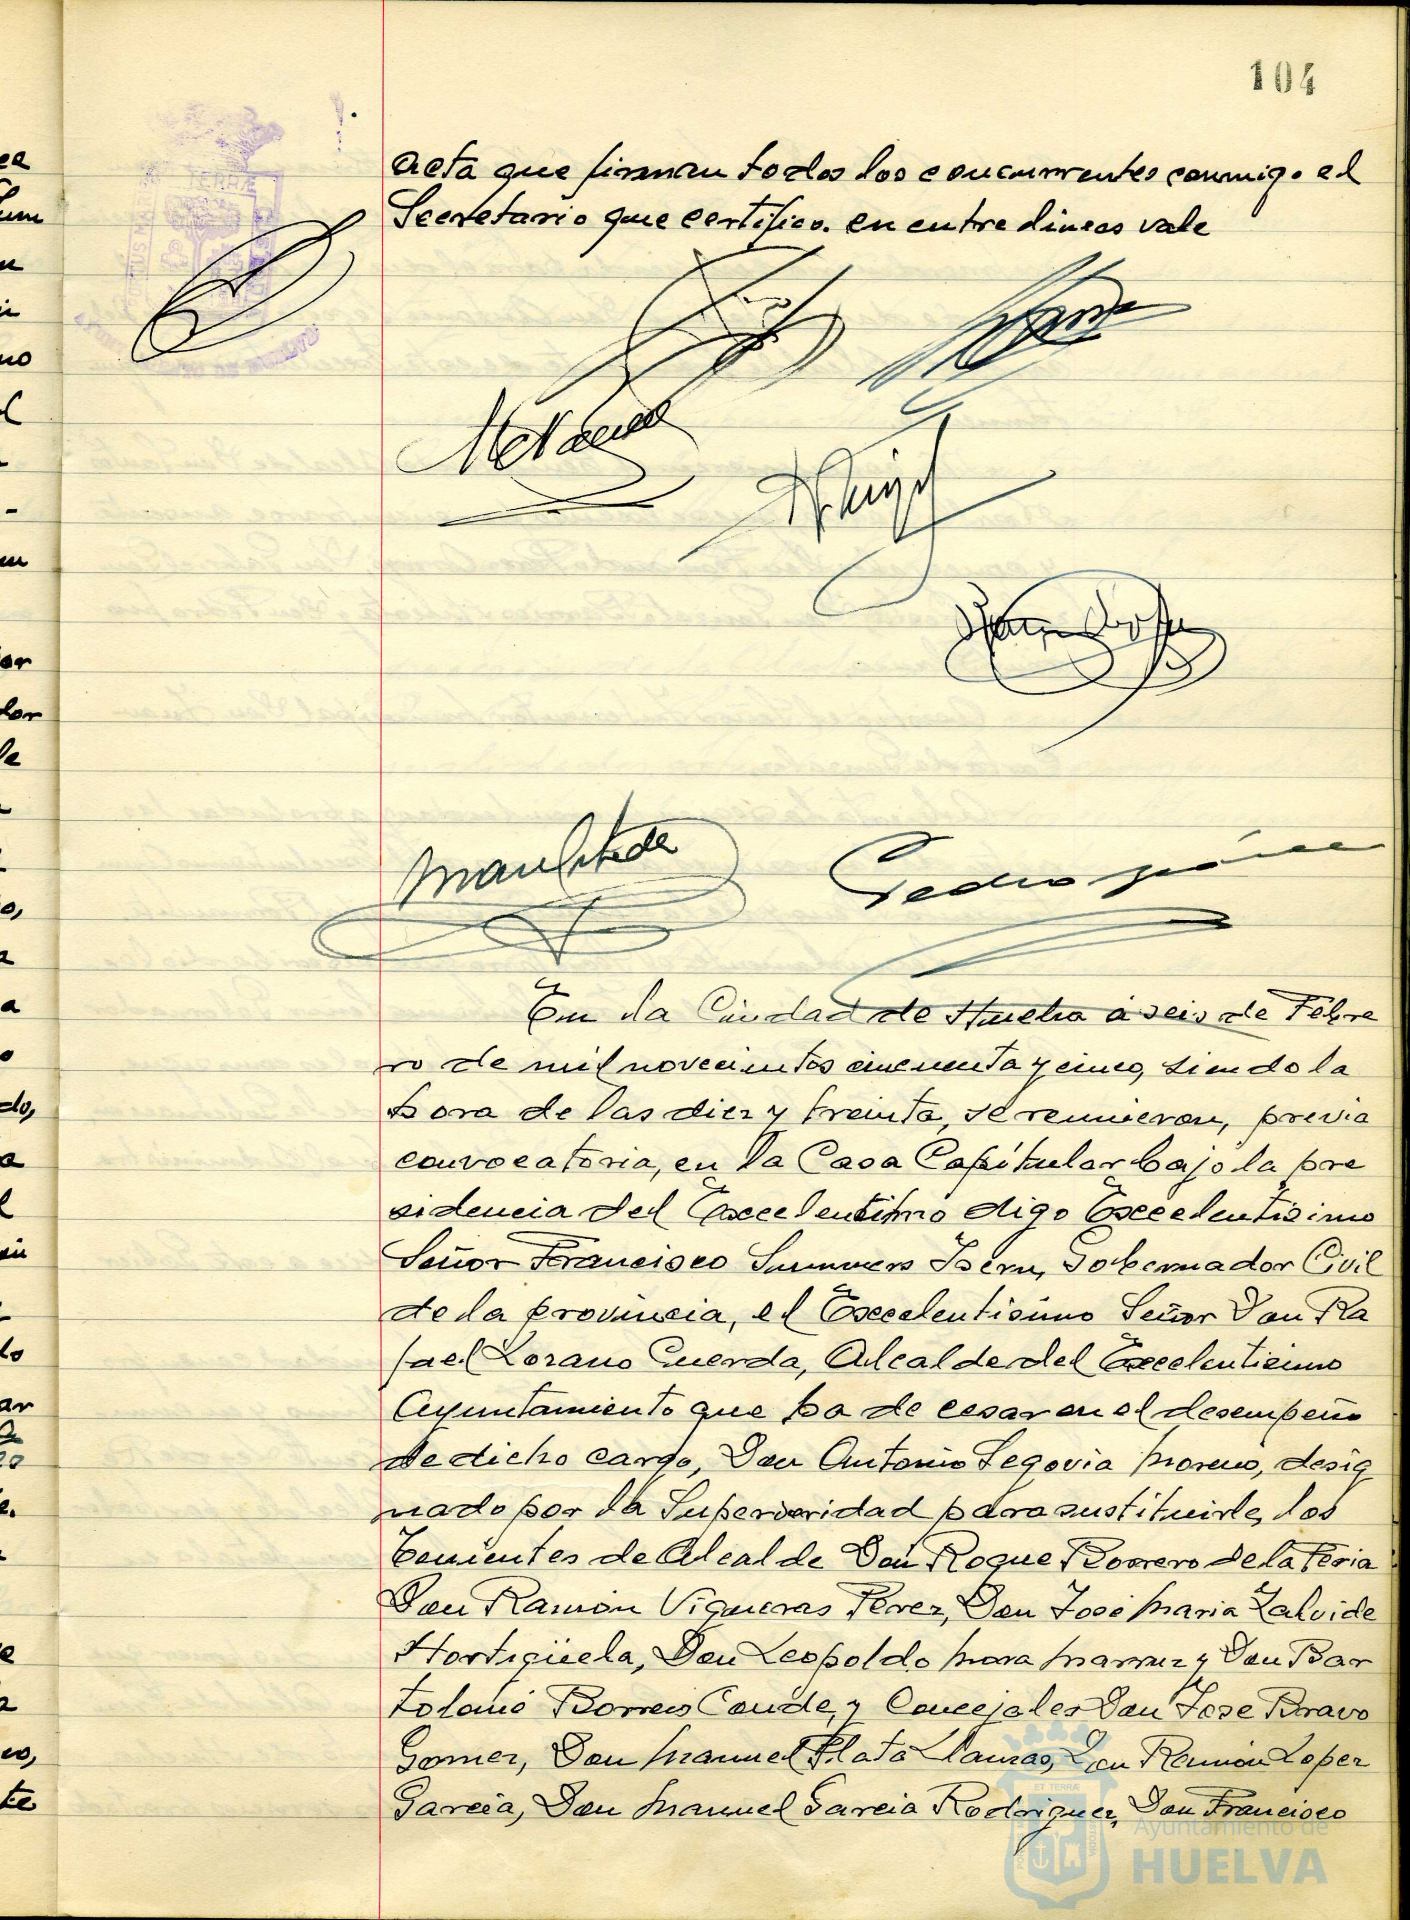 104
acta que firman todos los concurrentes conmigo el
Secretario que certifico. en entre lineas vale
En la Ciudad de Huelva á seis de Febre
ro de mil novecientos cincuenta y cinco, siendo la
hora de las diez y treinta, se reunieron, previa
convocatoria, en la Casa Capítular bajo la pre
sidencia del Excelentisimo digo Excelentisimo
Señor Francisco Summers Isern, Gobernador Civil
de la provincia, el Excelentisimo Señor Don Ra
fael Lozano Cuerda, Alcalde del Excelentisimo
Ayuntamiento que ha de cesar en el desempeño
de dicho cargo, Don Antonio Segovia Moreno, desig
nado por la Superioridad para sustituirle, los
Tenientes de Alcalde Don Roque Borrero de la Feria
Don Ramón Vigueras Perez, Don José Maria Zalvide
Hortigüela, Don Leopoldo Mora y Don Bar
tolomé Borrero Conde, y Concejales Don Jose Bravo
Gomez, Don Manuel Plata Llanzas, Don Ramón Lopez
Garcia, Don Manuel Garcia Rodriguez, Don Francisco
Ayuntamiento de
HUELVA